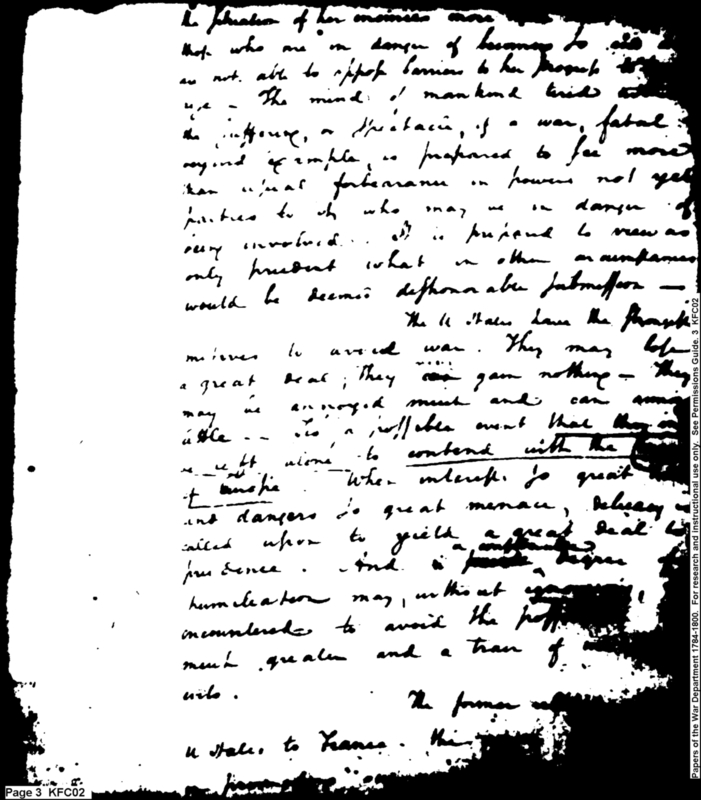 the situation of her enemies more
those who are in danger of becoming so
are not able to oppose barriers to her progress to
The mind of mankind tired
the suffering, or spectacle, of a war, fatal
beyond example, is prepared to see more
than usual forbearance in powers not yet
parties to it, who may be in danger of
being involved. It is prepared to view as
only prudent what in other circumstances
would be deemed dishonorable submission —
The U States have the strongest
motives to avoid war. They may lose
a great deal; they can gain nothing — They
may be annoyed much and can annoy
little — 'Tis a possible event that they
left alone to contend with the
of Europe. When interests so great
and dangers so great menace, delicacy is
called upon to yield a great deal to
prudence. And a considerable degree of
humiliation may, without ignominy,
encountered to avoid the
much greater and a train of
evils.
The former
U States to France. the
Page 3 KFC02
Papers of the War Department 1784-1800. For research and instructional use only. See Permissions Guide. 3 KFC02